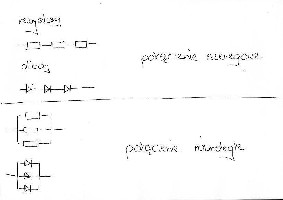 rezystory
połączenie szeregowe
diody
połączenie równoległe